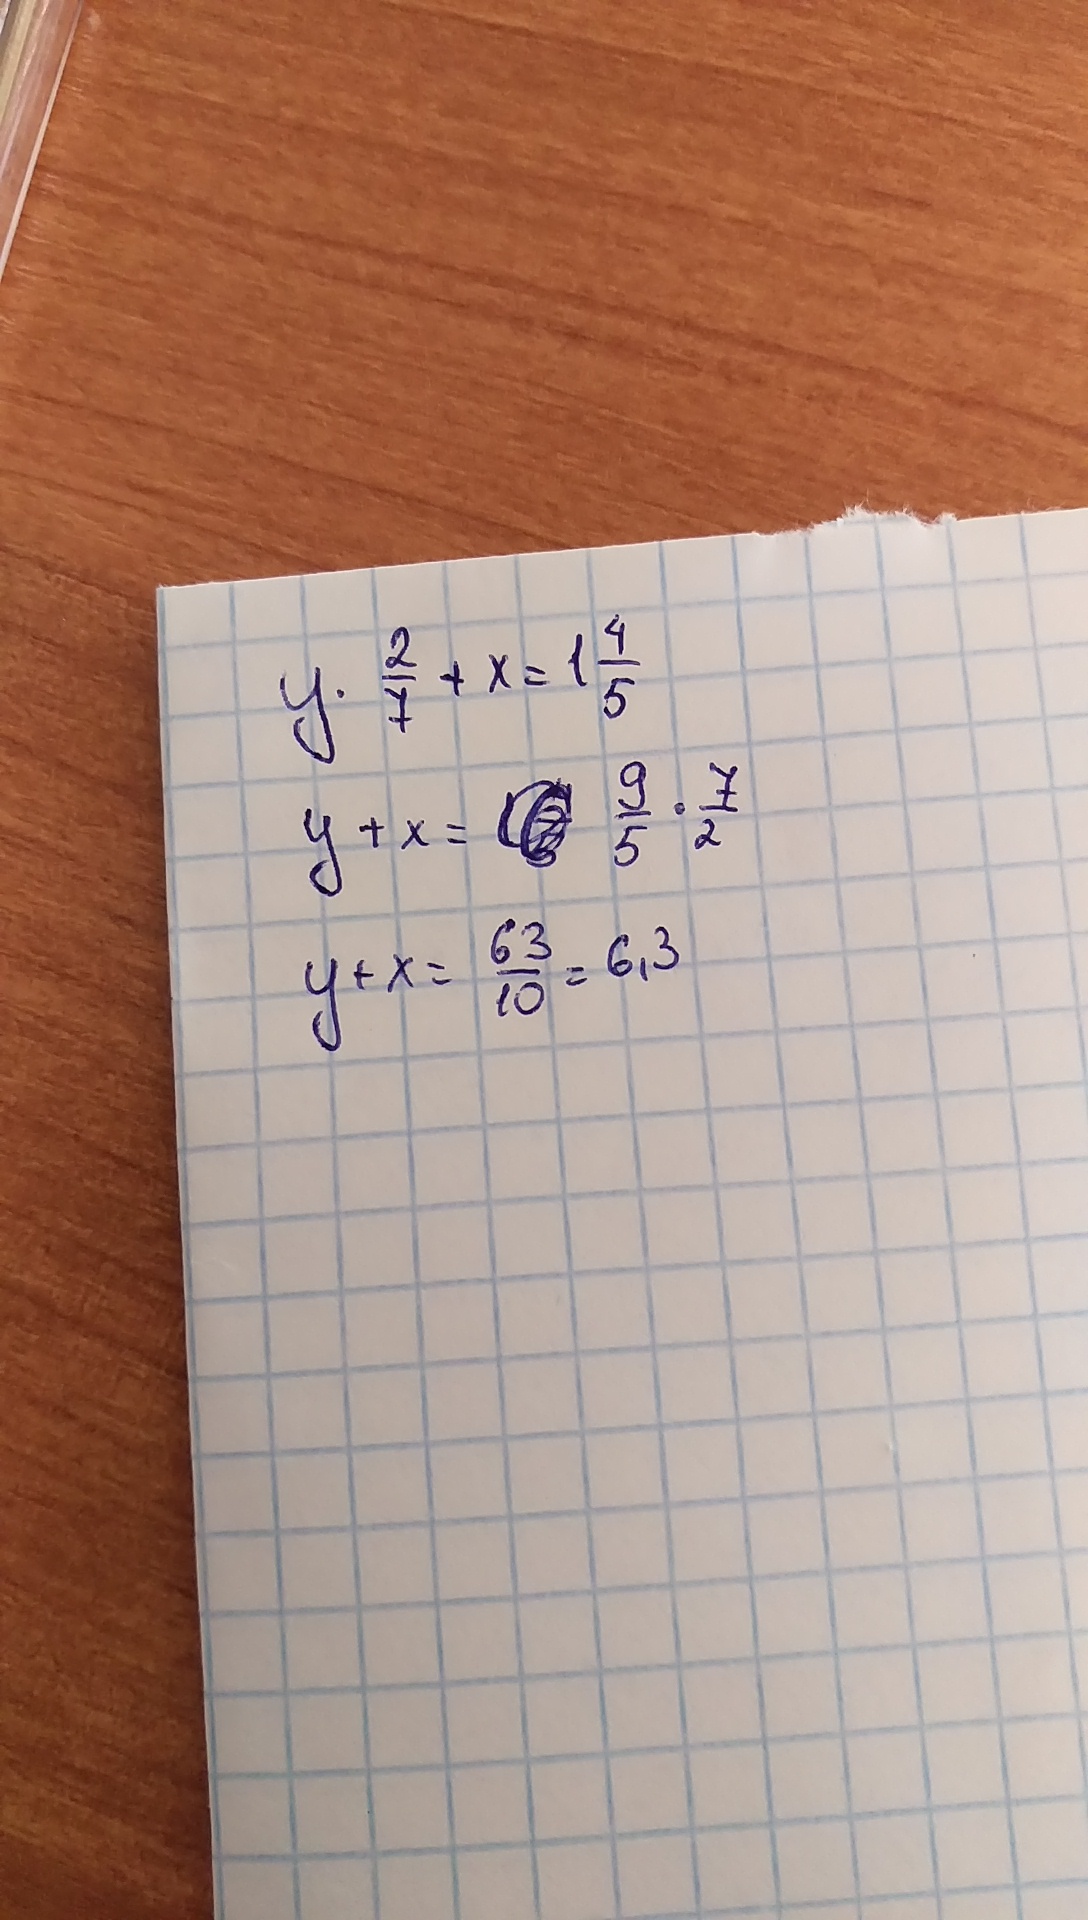 y · 2/7 + x = 1 4/5
y + x = 9/5 · 7/2
y + x = 63/10 = 6,3